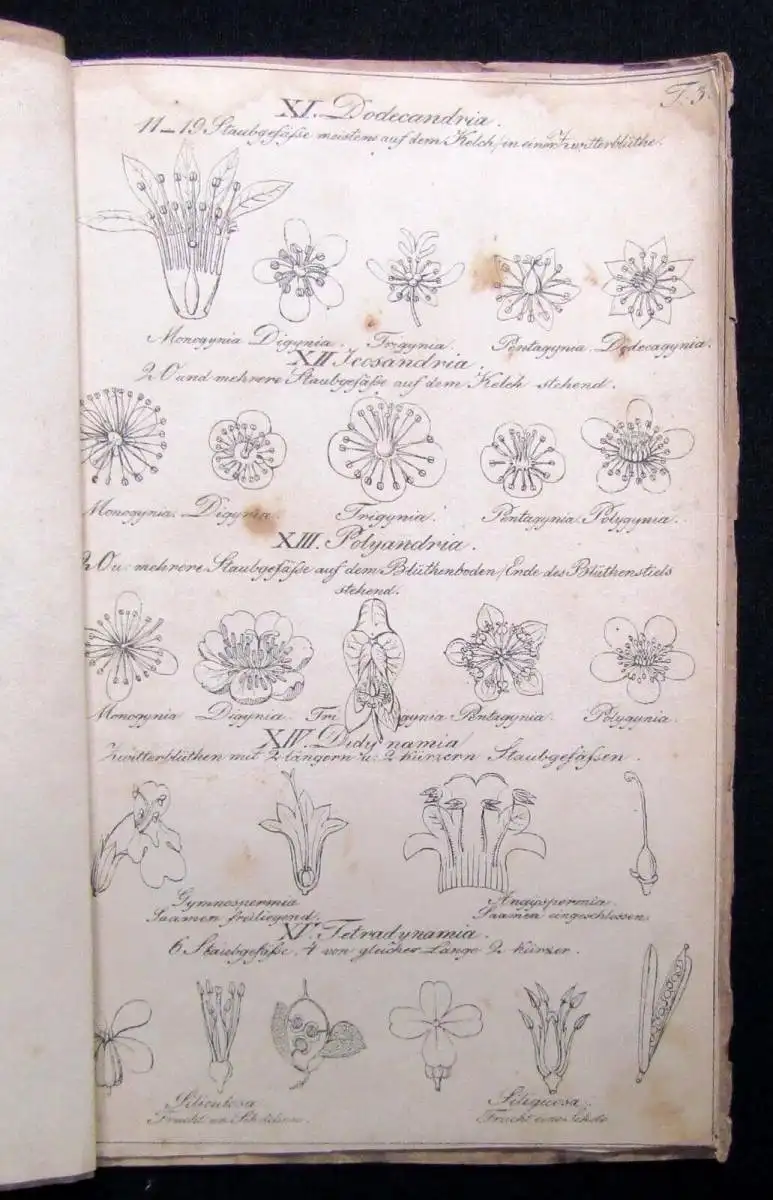 T. 3.
XI. Dodecandria.
11–19 Staubgefäße meistens auf dem Kelch/in einer Zwitterblüthe.
Monogynia Digynia. Trigynia. Pentagynia. Dodecagynia.
XII Icosandria.
20 und mehrere Staubgefäße auf dem Kelch stehend.
Monogynia. Digynia. Trigynia. Pentagynia. Polygynia.
XIII. Polyandria.
20 u. mehrere Staubgefäße auf dem Blüthenboden/Ende des Blüthenstiels
stehend.
Monogynia Digynia. Tri gynia Pentagynia. Polygynia.
XIV. Didynamia
Zwitterblüthen mit 2 längern u. 2 kürzern Staubgefäßen.
Gymnospermia Angyspermia.
Saamen freiliegend. Saamen eingeschlossen.
XV. Tetradynamia.
6 Staubgefäße, 4 von gleicher Länge 2 kürzer.
Siliculosa Siliquosa.
Frucht ein Schötchen. Frucht eine Schote